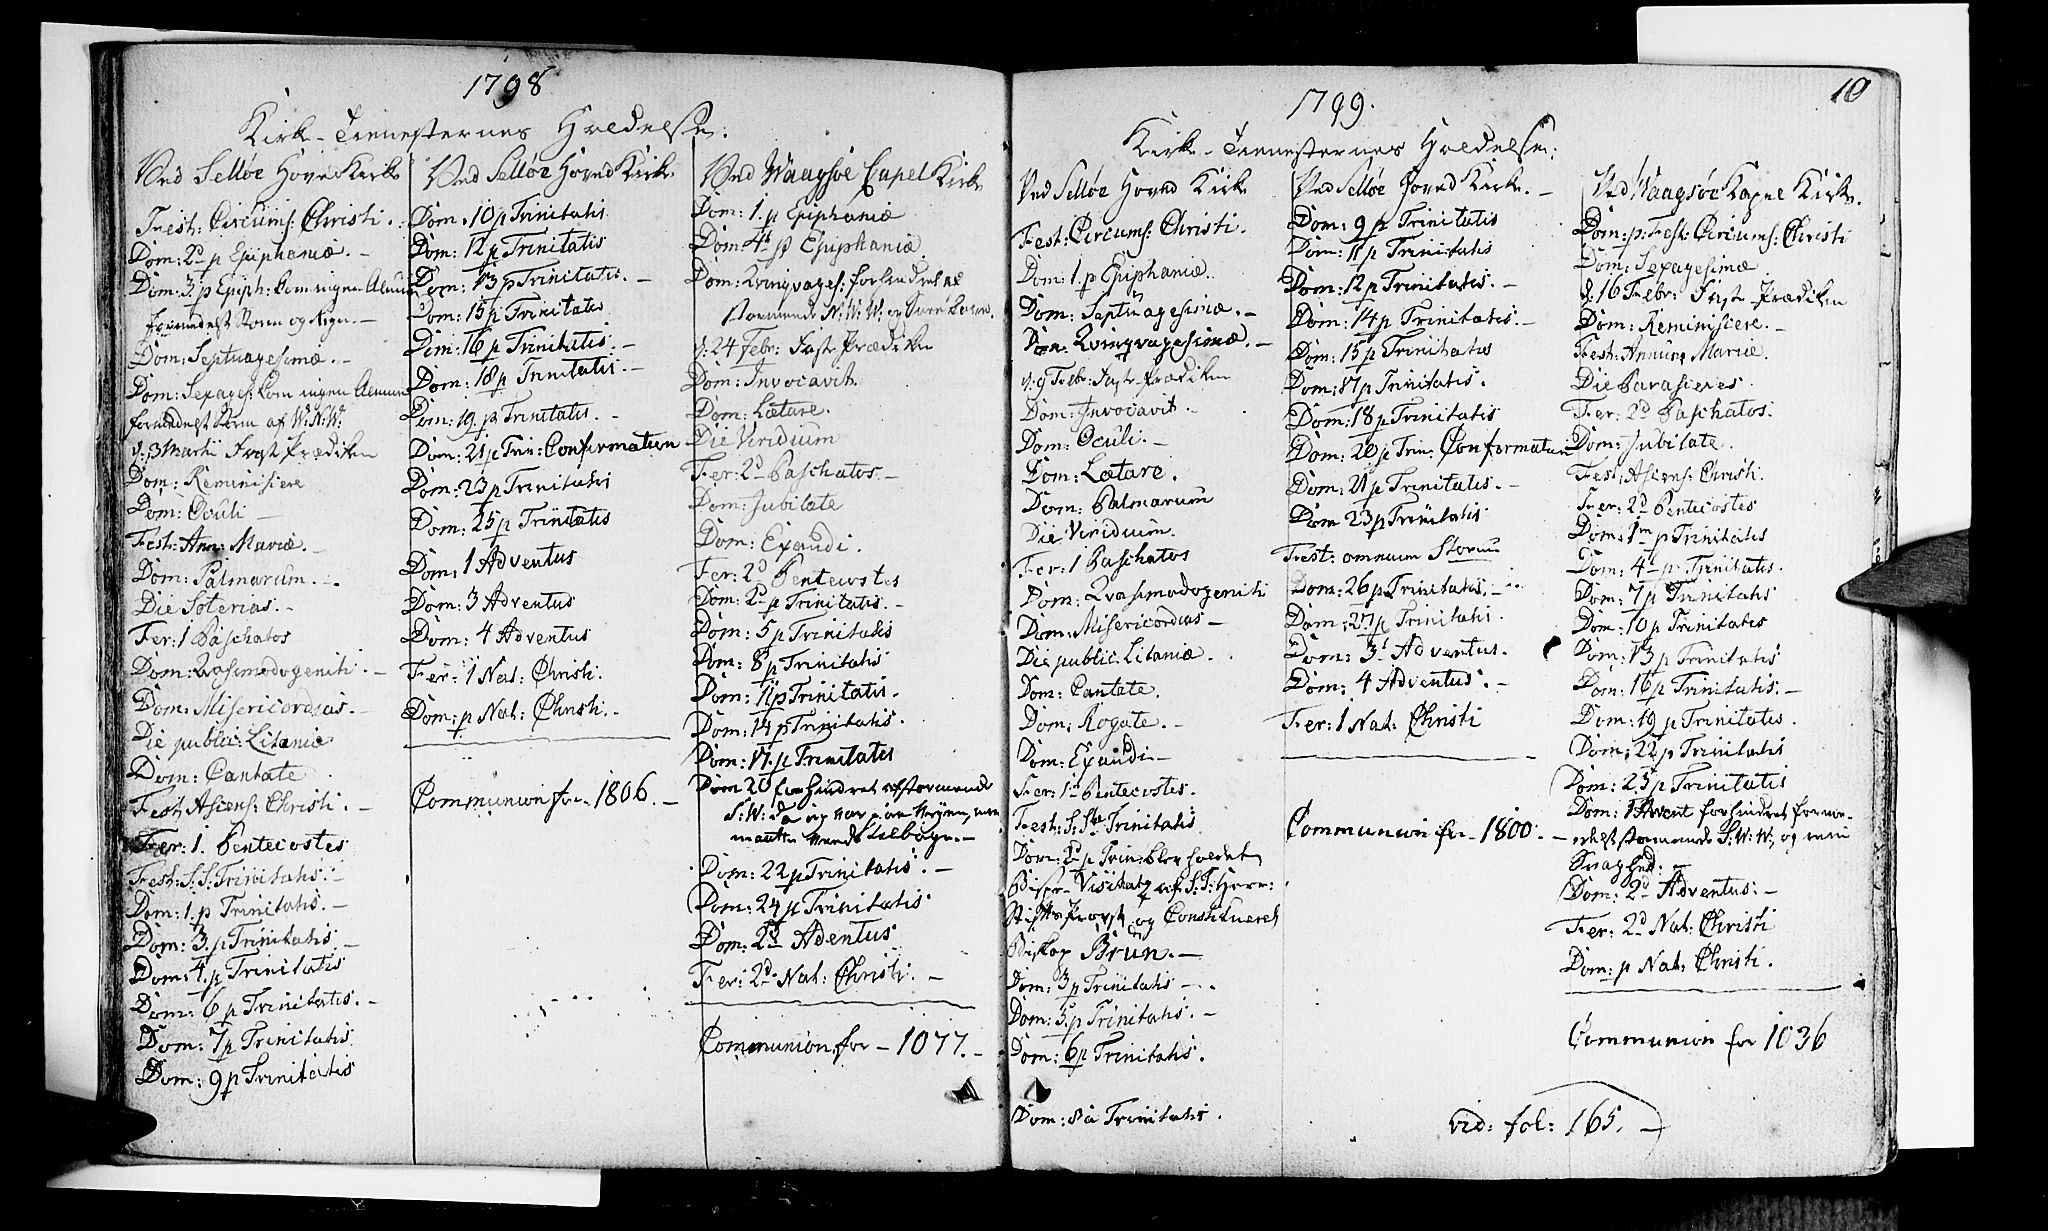 1798
Kirke-Tienesternes Holdelse:
Ved Selløe Hoved Kirke
Fest: Circums: Christi.
Dom: 2d p Epiphaniæ. -
Dom: 3. p Epiph: Kom ingen Almue
formedelst Storm og Regn. -
Dom: Septuagesimæ. -
Dom: Sexages: Kom ingen Almue
formedelst Storm af W: N: W:
d: 3 Martii Faste Prædiken
Dom: Reminisiere
Dom: Oculi -
Fest: Ann: Mariæ. -
Dom: Palmarum. -
Die Soterias. -
Fer: 1 Paschatos
Dom: Qvasimodogeniti. -
Dom: Misericordias. -
Die public: Litaniæ
Dom: Cantate
Fest: Ascens: Christi. -
Fer: 1. Pentecostes
Fest: S: S: Trinitatis. -
Dom: 1. p Trinitatis. -
Dom: 3. p Trinitatis. -
Dom: 4. p Trinitatis
Dom: 6 p Trinitatis. -
Dom: 7 p Trinitatis
Dom: 9 p Trinitatis
Ved Selløe Hoved Kirke
Dom: 10 p Trinitatis
Dom: 12 p Trinitatis
Dom: 13 p Trinitatis. -
Dom: 15 p Trinitatis
Dom: 16 p Trinitatis. -
Dom: 18 p Trinitatis. -
Dom: 19 p Trinitatis. -
Dom: 21 p Trin: Confirmation
Dom: 23 p Trinitatis
Dom: 25 p Trinitatis
Dom: 1 Adventus
Dom: 3 Adventus
Dom: 4 Adventus
Fer: 1 Nat: Christi.
Dom: p Nat: Christi. -
Communion for - 1806. -
Ved Waagsøe Capel Kirke
Dom: 1. p Epiphaniæ
Dom 4d p Epiphaniæ
Dom: Qvinqvages: forhindret af
stormende N: W: W: og
d: 24 Febr: Faste Prædiken
Dom: Invocavit
Dom: Lætare.
Die Viridium
Fer: 2d Paschatos -
Dom: Jubilate
Dom: Exaudi.
Fer: 2d Pentecostes
Dom: 2d p Trinitatis. -
Dom: 5 p Trinitatis
Dom: 8 p Trinitatis
Dom: 11 p Trinitatis.
Dom: 14 p Trinitatis.
Dom: 17. p Trinitatis
Dom 20 forhindret af stormende
S: W: da jeg var paa Veyen, men
maatte vende tilbage. -
Dom: 22 p Trinitatis. -
Dom: 24 p Trinitatis
Dom: 2d Adentus
Fer: 2d Nat: Christi. -
Communion for - 1077. -
10
1799.
Kirke-Tienesternes Holdelse:
Ved Selløe Hoved Kirke
Fest: Circums: Christi.
Dom: 1. p Epiphaniæ.
Dom: Septuagesimæ. -
Dom: Qvinqvagesimæ. -
d: 9 Febr: Faste Prædiken
Dom: Invocavit -
Dom: Oculi. -
Dom: Lætare.
Dom: Palmarum
Die Viridium.
Fer: 1 Paschatos
Dom: Qvasimodogeniti
Dom: Misericordias -
Die public: Litaniæ.
Dom: Cantate.
Dom: Rogate. -
Dom: Exaudi -
Fer: 1. Pentecostes.
Fest: S: Stæ Trinitatis
Dom: 2d p Trin: blev holdet
Bispe-Visitatz af S: T: Herr:
Stifts Provst og Constitueret
Biskop Brun. -
Dom: 3 p Trinitatis - .
Dom: 5. p Trinitatis. -
Dom: 6 p Trinitatis.
Dom: 8 à Trinitatis.
Ved Selløe Hoved Kirke. -
Dom: 9 p Trinitatis
Dom: 11 p Trinitatis
Dom: 12 p Trinitatis. -
Dom: 14 p Trinitatis. -
Dom: 15 p Trinitatis
Dom: 17 p Trinitatis.
Dom: 18 p Trinitatis
Dom: 20 p Trin: Confirmation
Dom: 21 p Trinitatis. -
Dom 23 p Trinitatis
Fest: omnium Storum
Dom: 26 p Trinitatis. -
Dom: 27 p Trinitatis.
Dom: 3d Adventus.
Dom: 4 Adventus. -
Fer: 1 Nat: Christi
Communion for - 1800. -
Ved Waagsøe Kapel Kirke.
Dom: p: Fest: Circums: Christi
Dom: Sexagesimæ
d: 16 Febr: Faste Prædiken
Dom: Reminisiere. -
Fest: Annunc Mariæ.
Die Parasceves.
Fer: 2d Paschatos.
Dom: Jubilate.
Fest: Ascens: Christi.
Fer: 2d Pentecostes
Dom: 1m p Trinitatis
Dom: 4 p Trinitatis.
Dom: 7 p Trinitatis
Dom: 10 p Trinitatis
Dom: 13 p Trinitatis
Dom: 16 p Trinitatis. -
Dom: 19 p Trinitatis.
Dom: 22 p Trinitatis
Dom: 25 p Trinitatis
Dom: 1 Advent forhindret forme-
delst stormende S: W: W: og min
Svaghed.
Dom: 2d Adventus. -
Fer: 2d Nat: Christi
Dom: p Nat: Christi.
Communion for 1036
vid: fol: 165. -